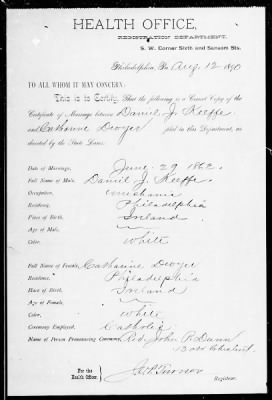 HEALTH OFFICE,
REGISTRATION DEPARTMENT.
S. W. Corner Sixth and Sansom Sts.
Philadelphia, Pa Aug. 12 1890
TO ALL WHOM IT MAY CONCERN:
This is to Certify, That the following is a Correct Copy of the
Certificate of Marriage between Daniel J. Keeffe
and Catharine Dwyer filed in this Department, as
directed by the State Laws.
Date of Marriage, June 29 1862
Full Name of Male, Daniel J. Keeffe
Occupation, mechanic
Residence, Philadelphia
Place of Birth, Ireland
Age of Male,
Color, White
Full Name of Female, Catharine Dwyer
Residence, Philadelphia
Place of Birth, Ireland
Age of Female,
Color, White
Ceremony Employed, Catholic
Name of Person Pronouncing Ceremony, Rev. John P. Dunn
For the
Health Officer.
Registrar.